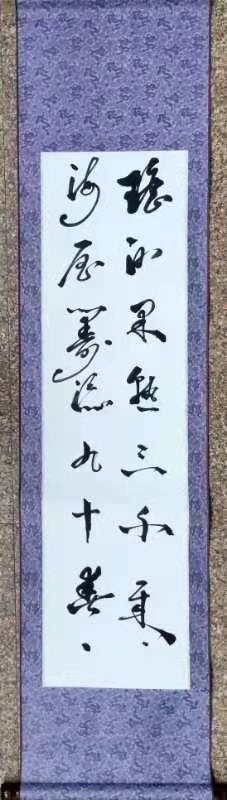 瑶池果熟三千歲、
海屋籌添九十春、